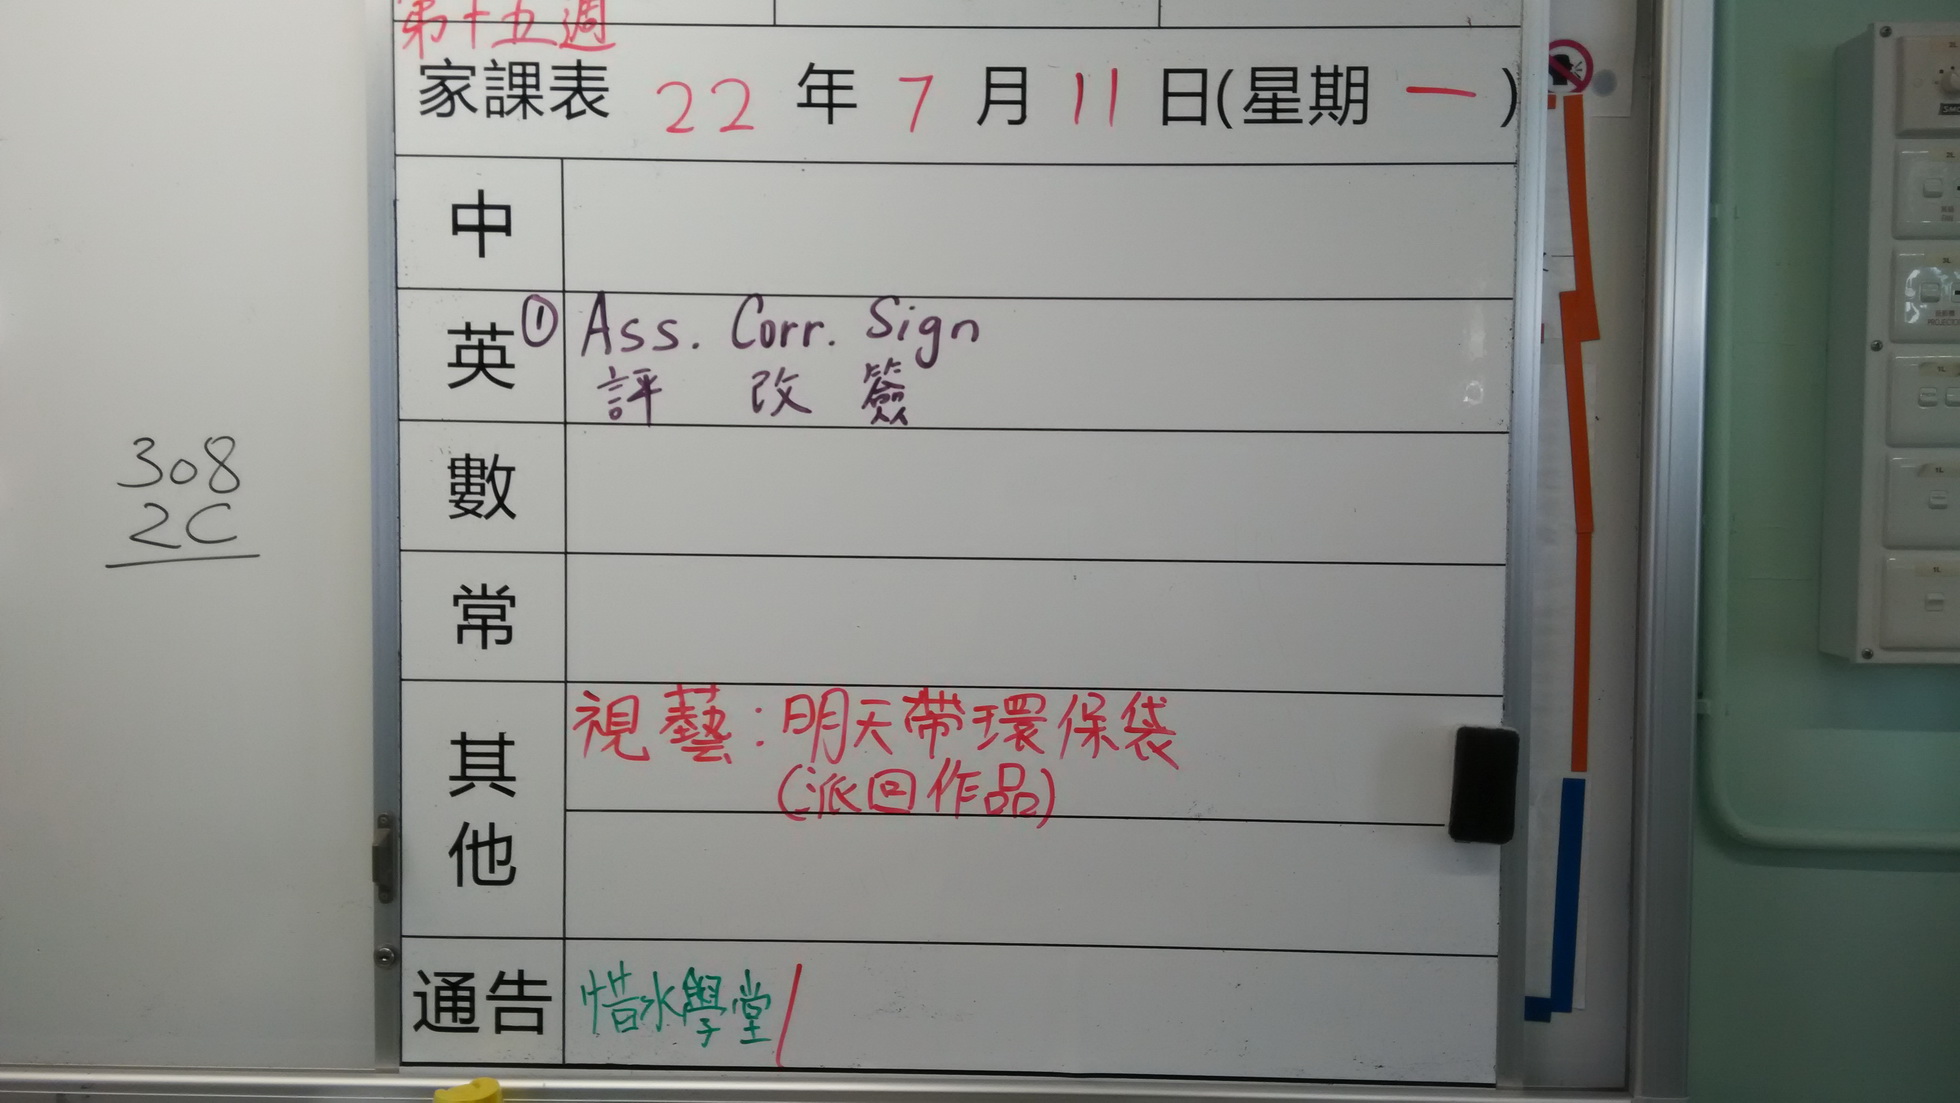 第十五週
家課表 22 年 7 月 11 日(星期 一 )
中
英 ① Ass. Corr. Sign
評 改 簽
數
常
其他
視藝：明天帶環保袋
(派回作品)
通告 惜水學堂/
308
2C